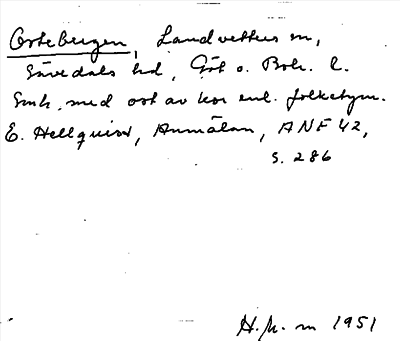 Ostebergen, Landvetters sn,
Sävedals hd, Göt o. Boh. l.
Smh. med ost av kor enl. folketym.
E. Hellquist, Anmälan, ANF 42,
s. 286
H. m 1951